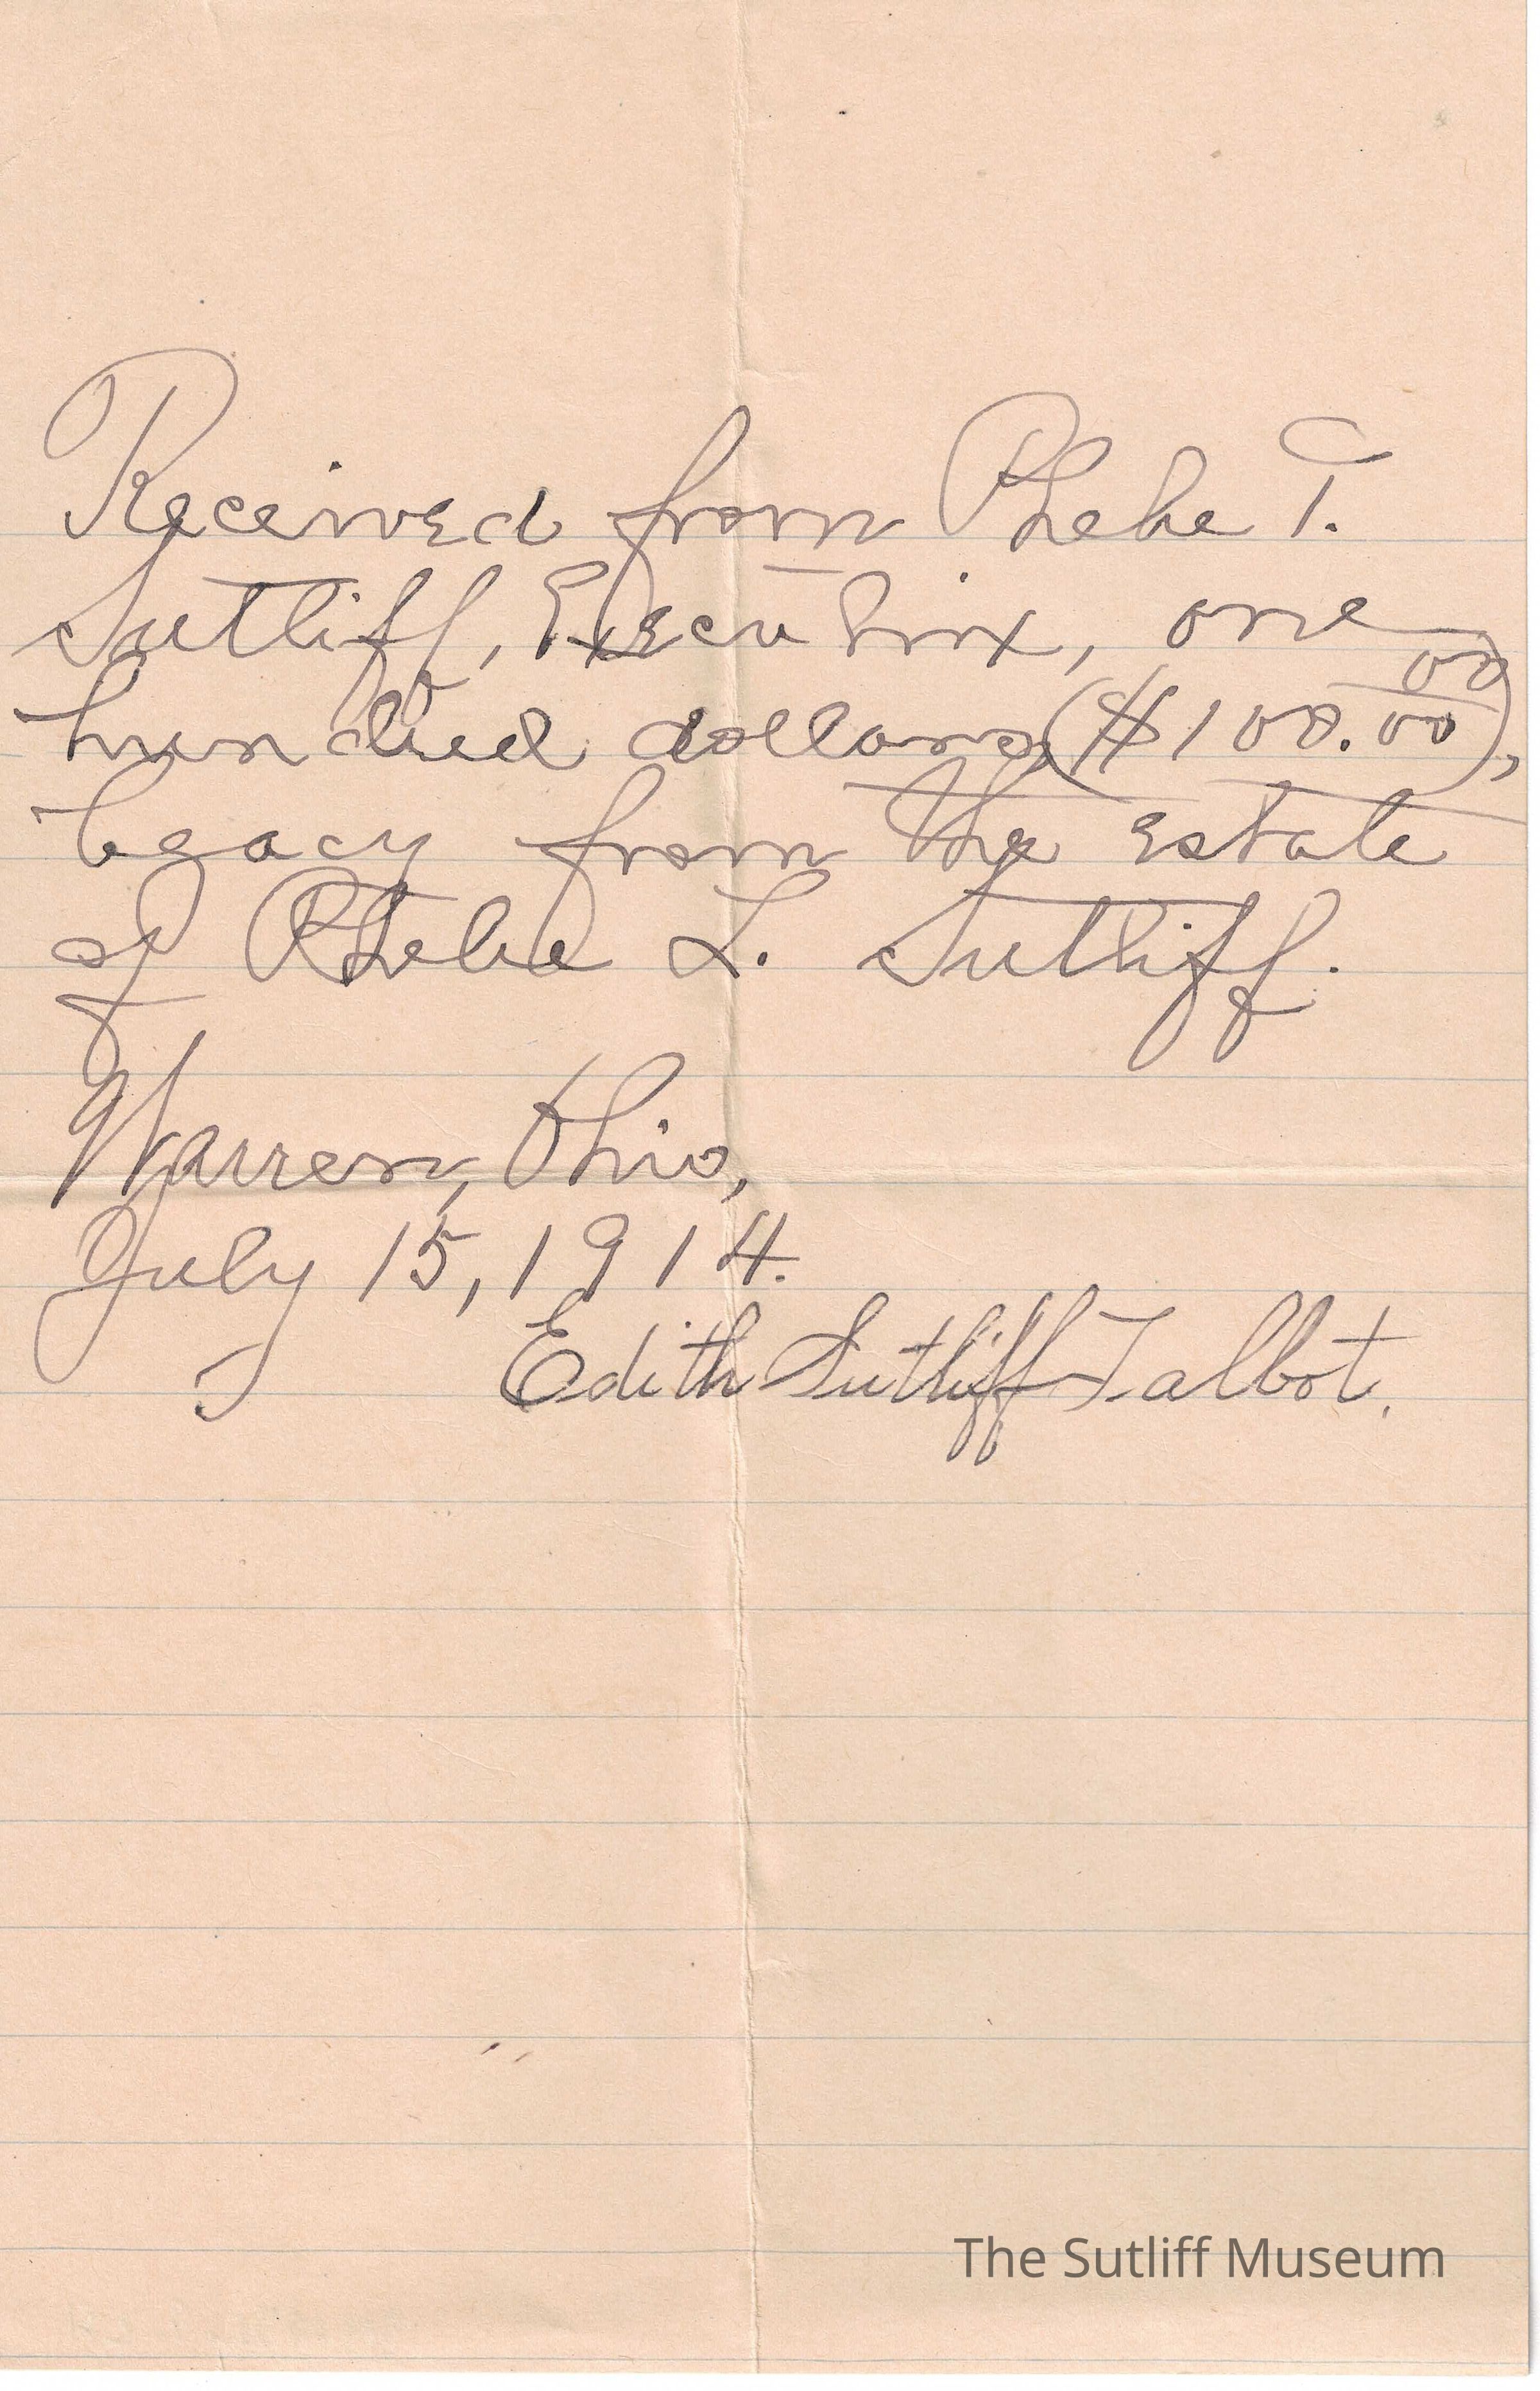 Received from Phebe T.
Sutliff, Executrix, one
hundred dollars ($100.00 00),
legacy from the estate
of Phebe L. Sutliff.
Warren, Ohio,
July 15, 1914.
Edith Sutliff Talbot.
The Sutliff Museum